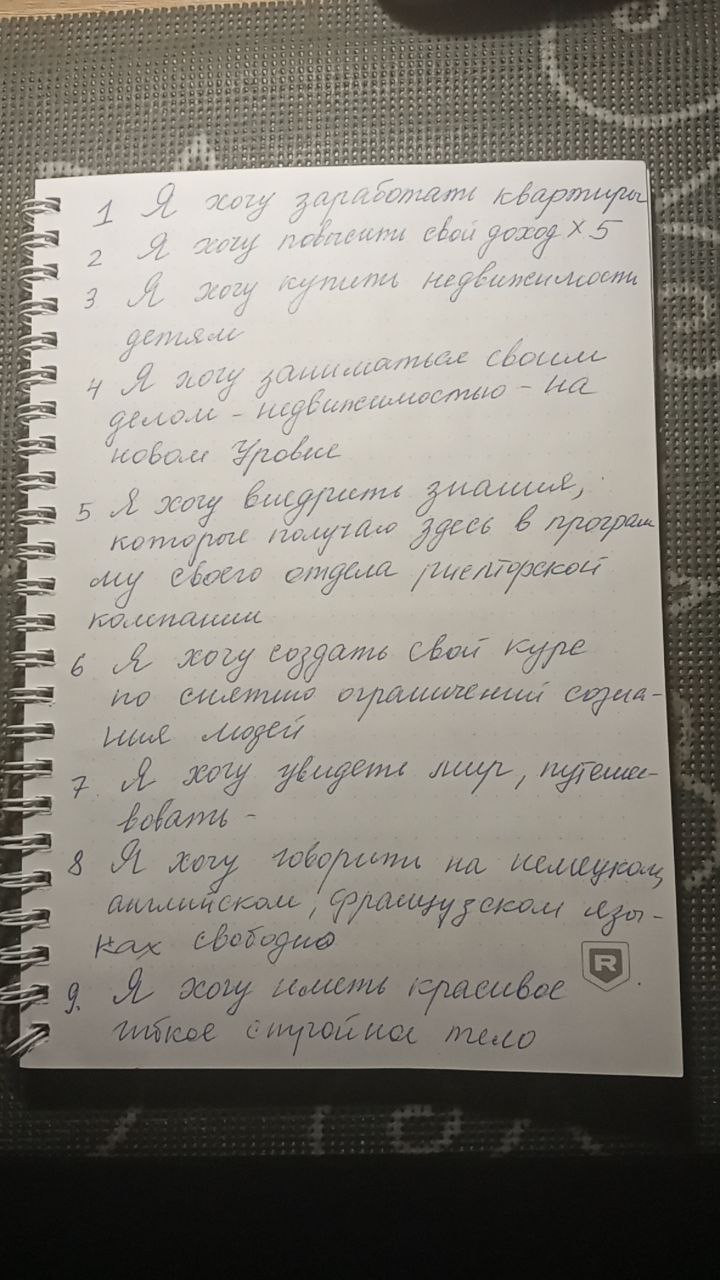 1 Я хочу заработать квартиры
2 Я хочу повысить свой доход × 5
3 Я хочу купить недвижимость
детям
4 Я хочу заниматься своим
делом - недвижимостью - на
новом Уровне
5 Я хочу внедрить знания,
которые получаю здесь в програм
му своего отдела риелторской
компании
6 Я хочу создать свой курс
по снятию ограничений созна-
ния людей
7. Я хочу увидеть мир, путеше-
вовать -
8 Я хочу говорить на немецком,
английском, французском язы-
ках свободно
R
9. Я хочу иметь красивое
гибкое стройное тело